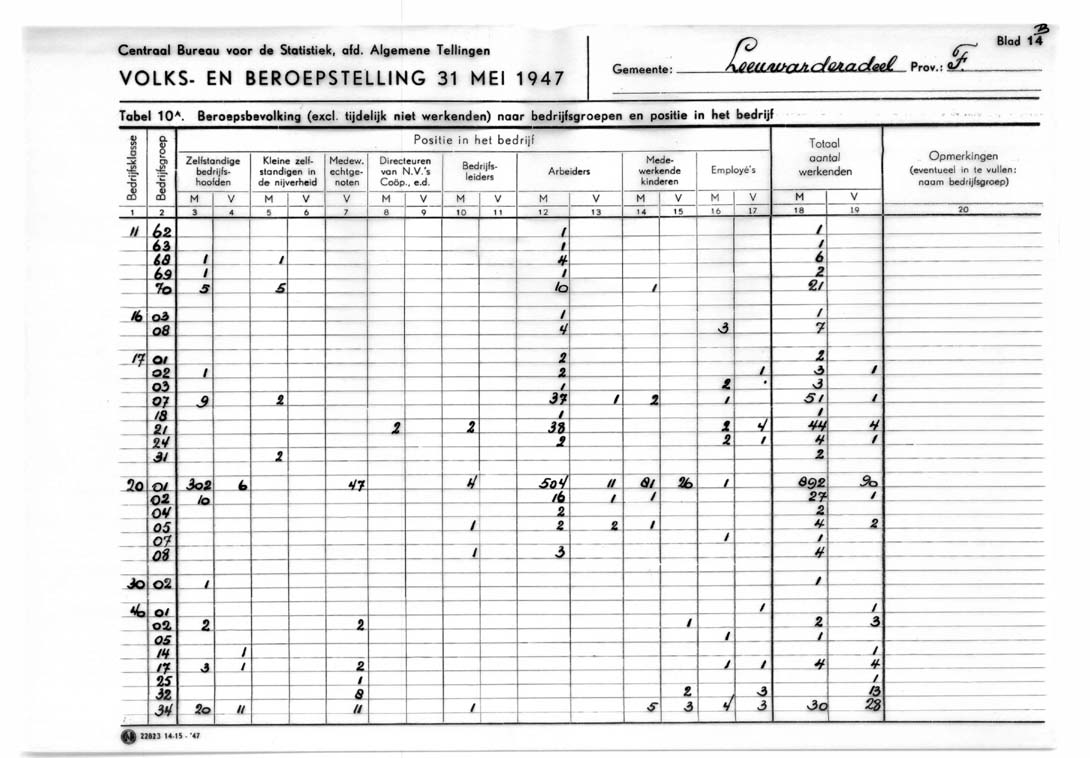 Centraal Bureau voor de Statistiek, afd. Algemene Tellingen
VOLKS- EN BEROEPSTELLING 31 MEI 1947
Gemeente: Leeuwarderadeel Prov.: F.
Blad 14 B
Tabel 10A. Beroepsbevolking (excl. tijdelijk niet werkenden) naar bedrijfsgroepen en positie in het bedrijf
Bedrijfsklasse
Bedrijfsgroep
Positie in het bedrijf
Zelfstandige bedrijfs- hoofden
Kleine zelf- standigen in de nijverheid
Medew. echtge- noten
Directeuren van N.V.'s Coöp., e.d.
Bedrijfs- leiders
Arbeiders
Mede- werkende kinderen
Employé's
Totaal aantal werkenden
Opmerkingen (eventueel in te vullen: naam bedrijfsgroep)
M V M V V M V M V M V M V M V M V
1 2 3 4 5 6 7 8 9 10 11 12 13 14 15 16 17 18 19 20
11 62 1 1
63 1 1
68 1 1 4 6
69 1 1 2
70 5 5 10 1 21
16 03 1 1
08 4 3 7
17 01 2 2
02 1 2 1 3 1
03 1 2 3
07 9 2 37 1 2 1 51 1
18 1 1
21 2 2 38 2 4 44 4
24 2 2 1 4 1
31 2 2
20 01 302 6 47 4 504 11 81 26 1 892 90
02 10 16 1 1 27 1
04 2 2
05 1 2 2 1 4 2
07 1 1
08 1 3 4
30 02 1 1
46 01 1 1
02 2 2 1 2 3
05 1 1
14 1 1
17 3 1 2 1 1 4 4
25 1 1
32 8 2 3 13
34 20 11 11 1 5 3 4 3 30 28
22823 14-15 - '47